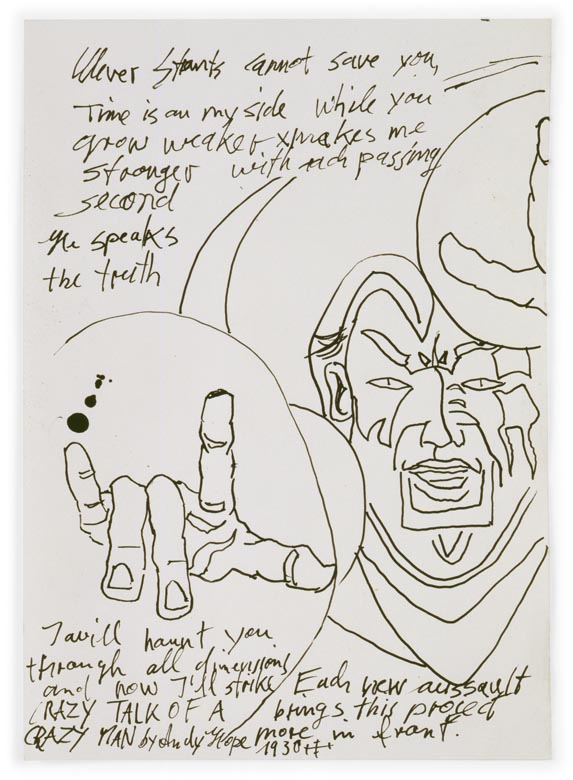 Clever Stunts cannot save you,
Time is on my side while you
grow weaker makes me
stronger with each passing
second
He speaks
the truth
I will haunt you
through all dimensions
and now I'll strike
CRAZY TALK OF A
CRAZY MAN by Andy Hope
1930
Each new aussault
brings this project
more in front.